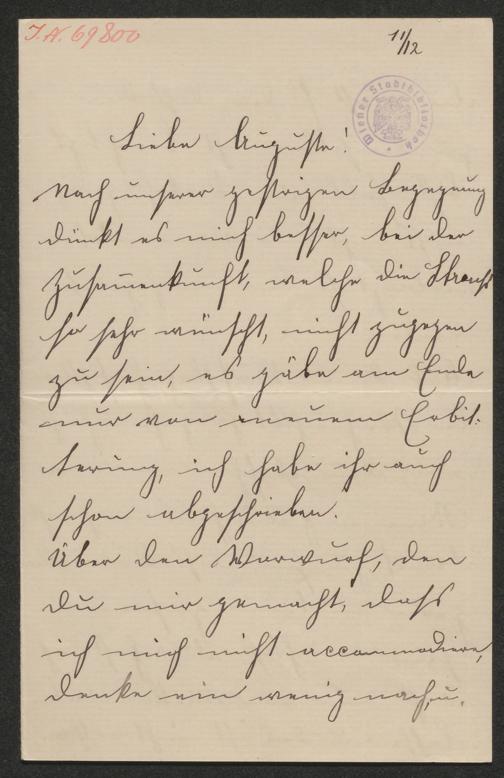 I.N. 69800
11/12
Wiener Stadtbibliothek
Liebe Auguste!
Nach unserer gestrigen Begegnung
dünkt es mich besser, bei der
Zusam̅enkunft, welche die Strauß
so sehr wünscht, nicht zugegen
zu sein, es gäbe am Ende
nur von neuem Erbit-
terung, ich habe ihr auch
schon abgeschrieben.
Über den Vorwurf, den
Du mir gemacht, dass
ich mich nicht accommodiere,
denke ein wenig nach, u.